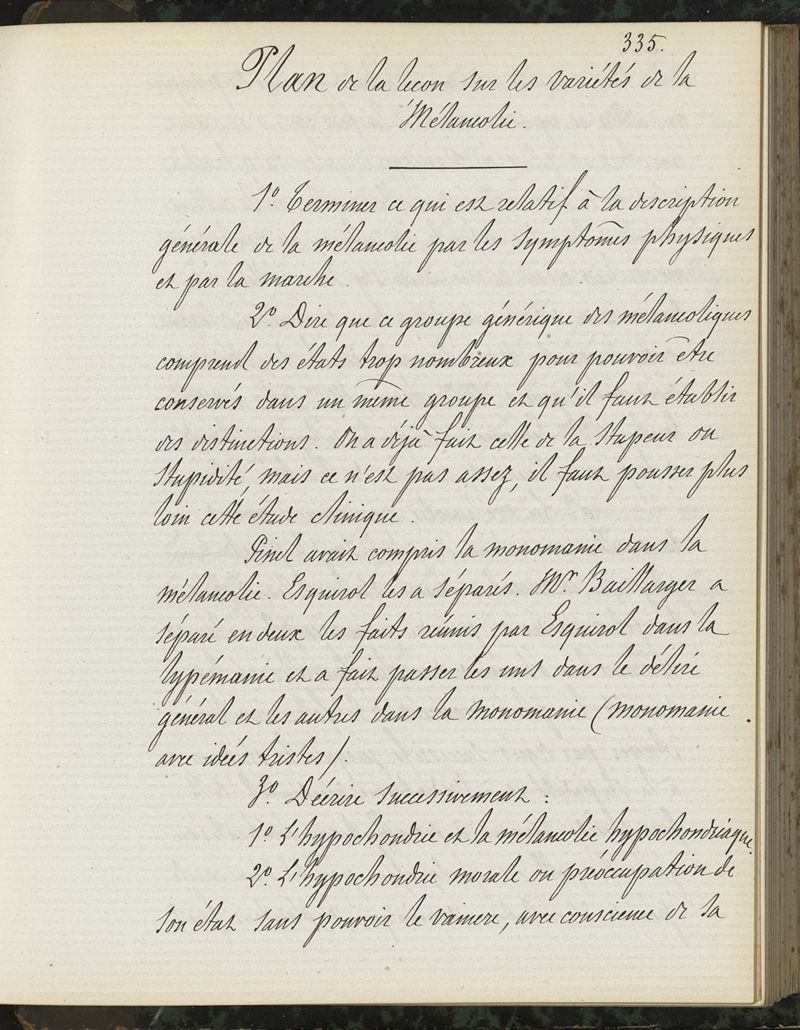 335.
Plan de la leçon sur les variétés de la
Mélancolie.
1º Terminer ce qui est relatif à la description
générale de la mélancolie par les symptômes physiques
et par la marche.
2º. Dire que ce groupe générique des mélancoliques
comprend des états trop nombreux pour pouvoir être
conservés dans un même groupe et qu'il faut établir
des distinctions. On a déjà fait celle de la stupeur ou
stupidité, mais ce n'est pas assez, il faut pousser plus
loin cette étude clinique.
Pinel avait compris la monomanie dans la
mélancolie. Esquirol les a séparés. Mr. Baillarger a
séparé en deux les faits réunis par Esquirol dans la
lypémanie et a fait passer les uns dans le délire
général et les autres dans la monomanie (monomanie
avec idées tristes).
3º. Décrire successivement :
1º L'hypochondrie et la mélancolie hypochondriaque.
2º. L'hypochondrie morale ou préoccupation de
son état sans pouvoir le vaincre, avec conscience de sa